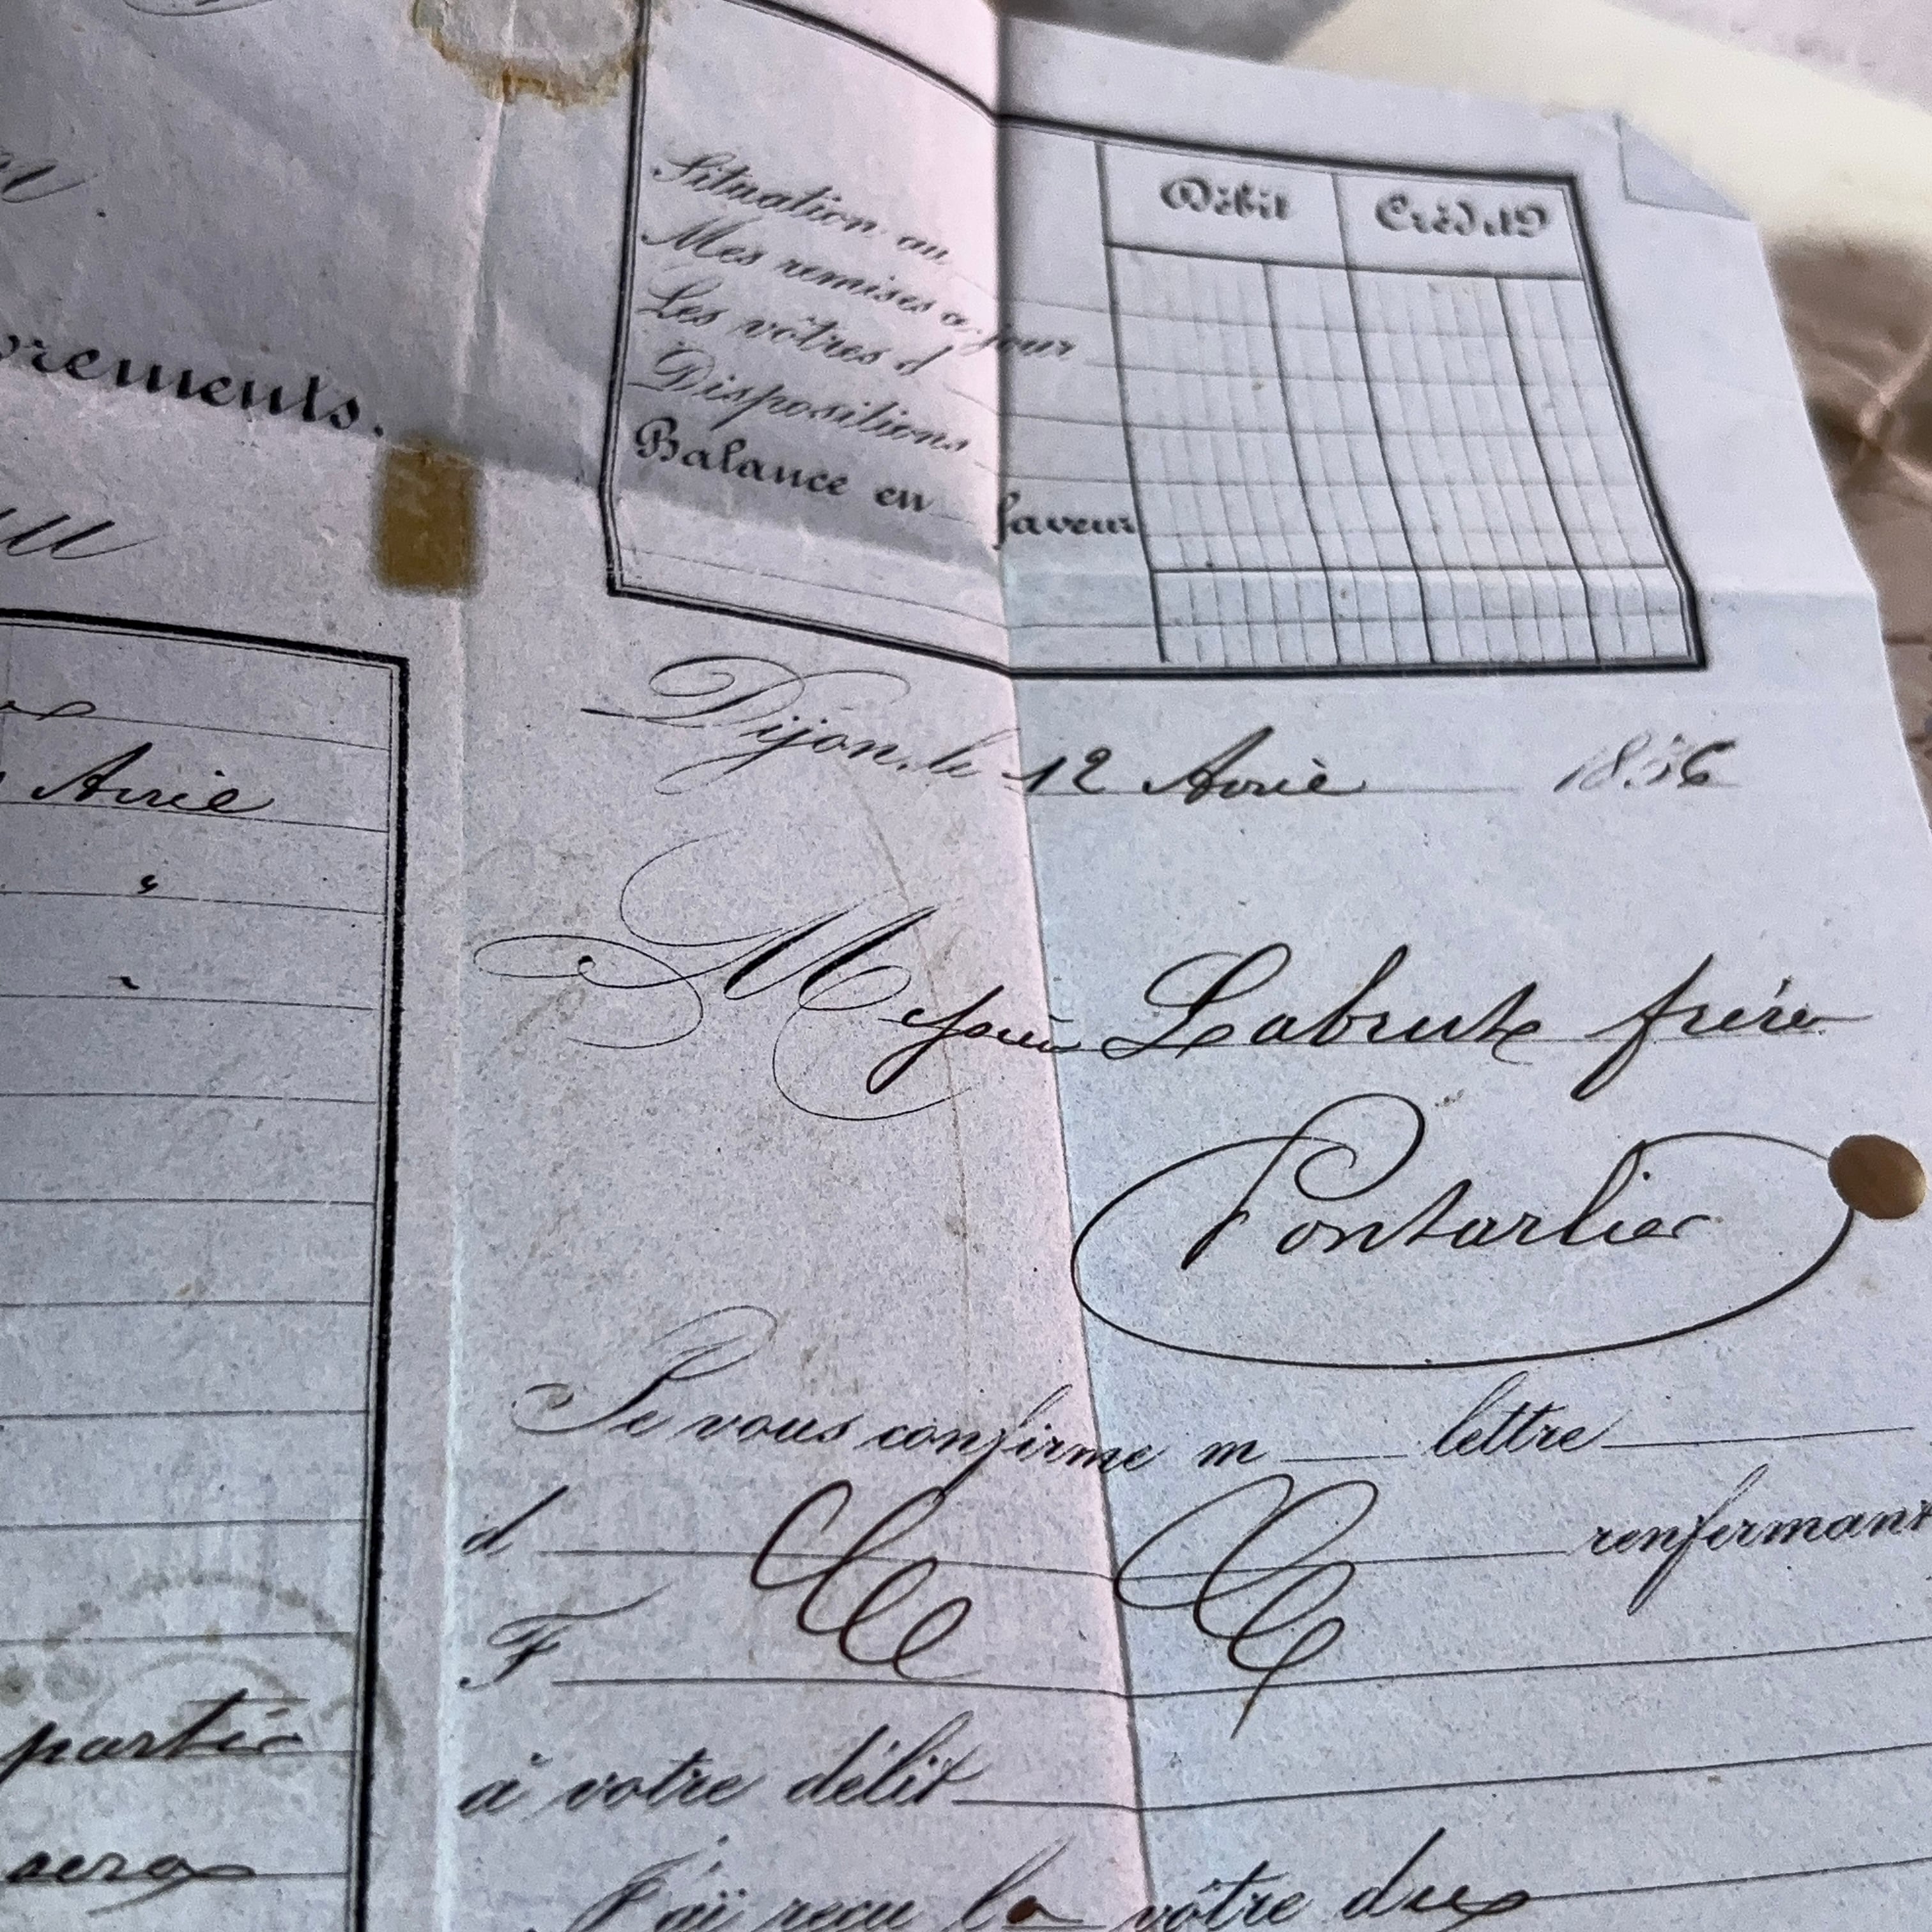 Débit Crédit
Situation au
Mes remises ce jour
Les vôtres d
Dispositions
Balance en faveur
vrements.
Dijon, le 12 Avril 1856
Avril
Labrut frères
Pontarlier
Je vous confirme m lettre
d renfermant
F
à votre débit
J'ai reçu la vôtre du
partir
sera